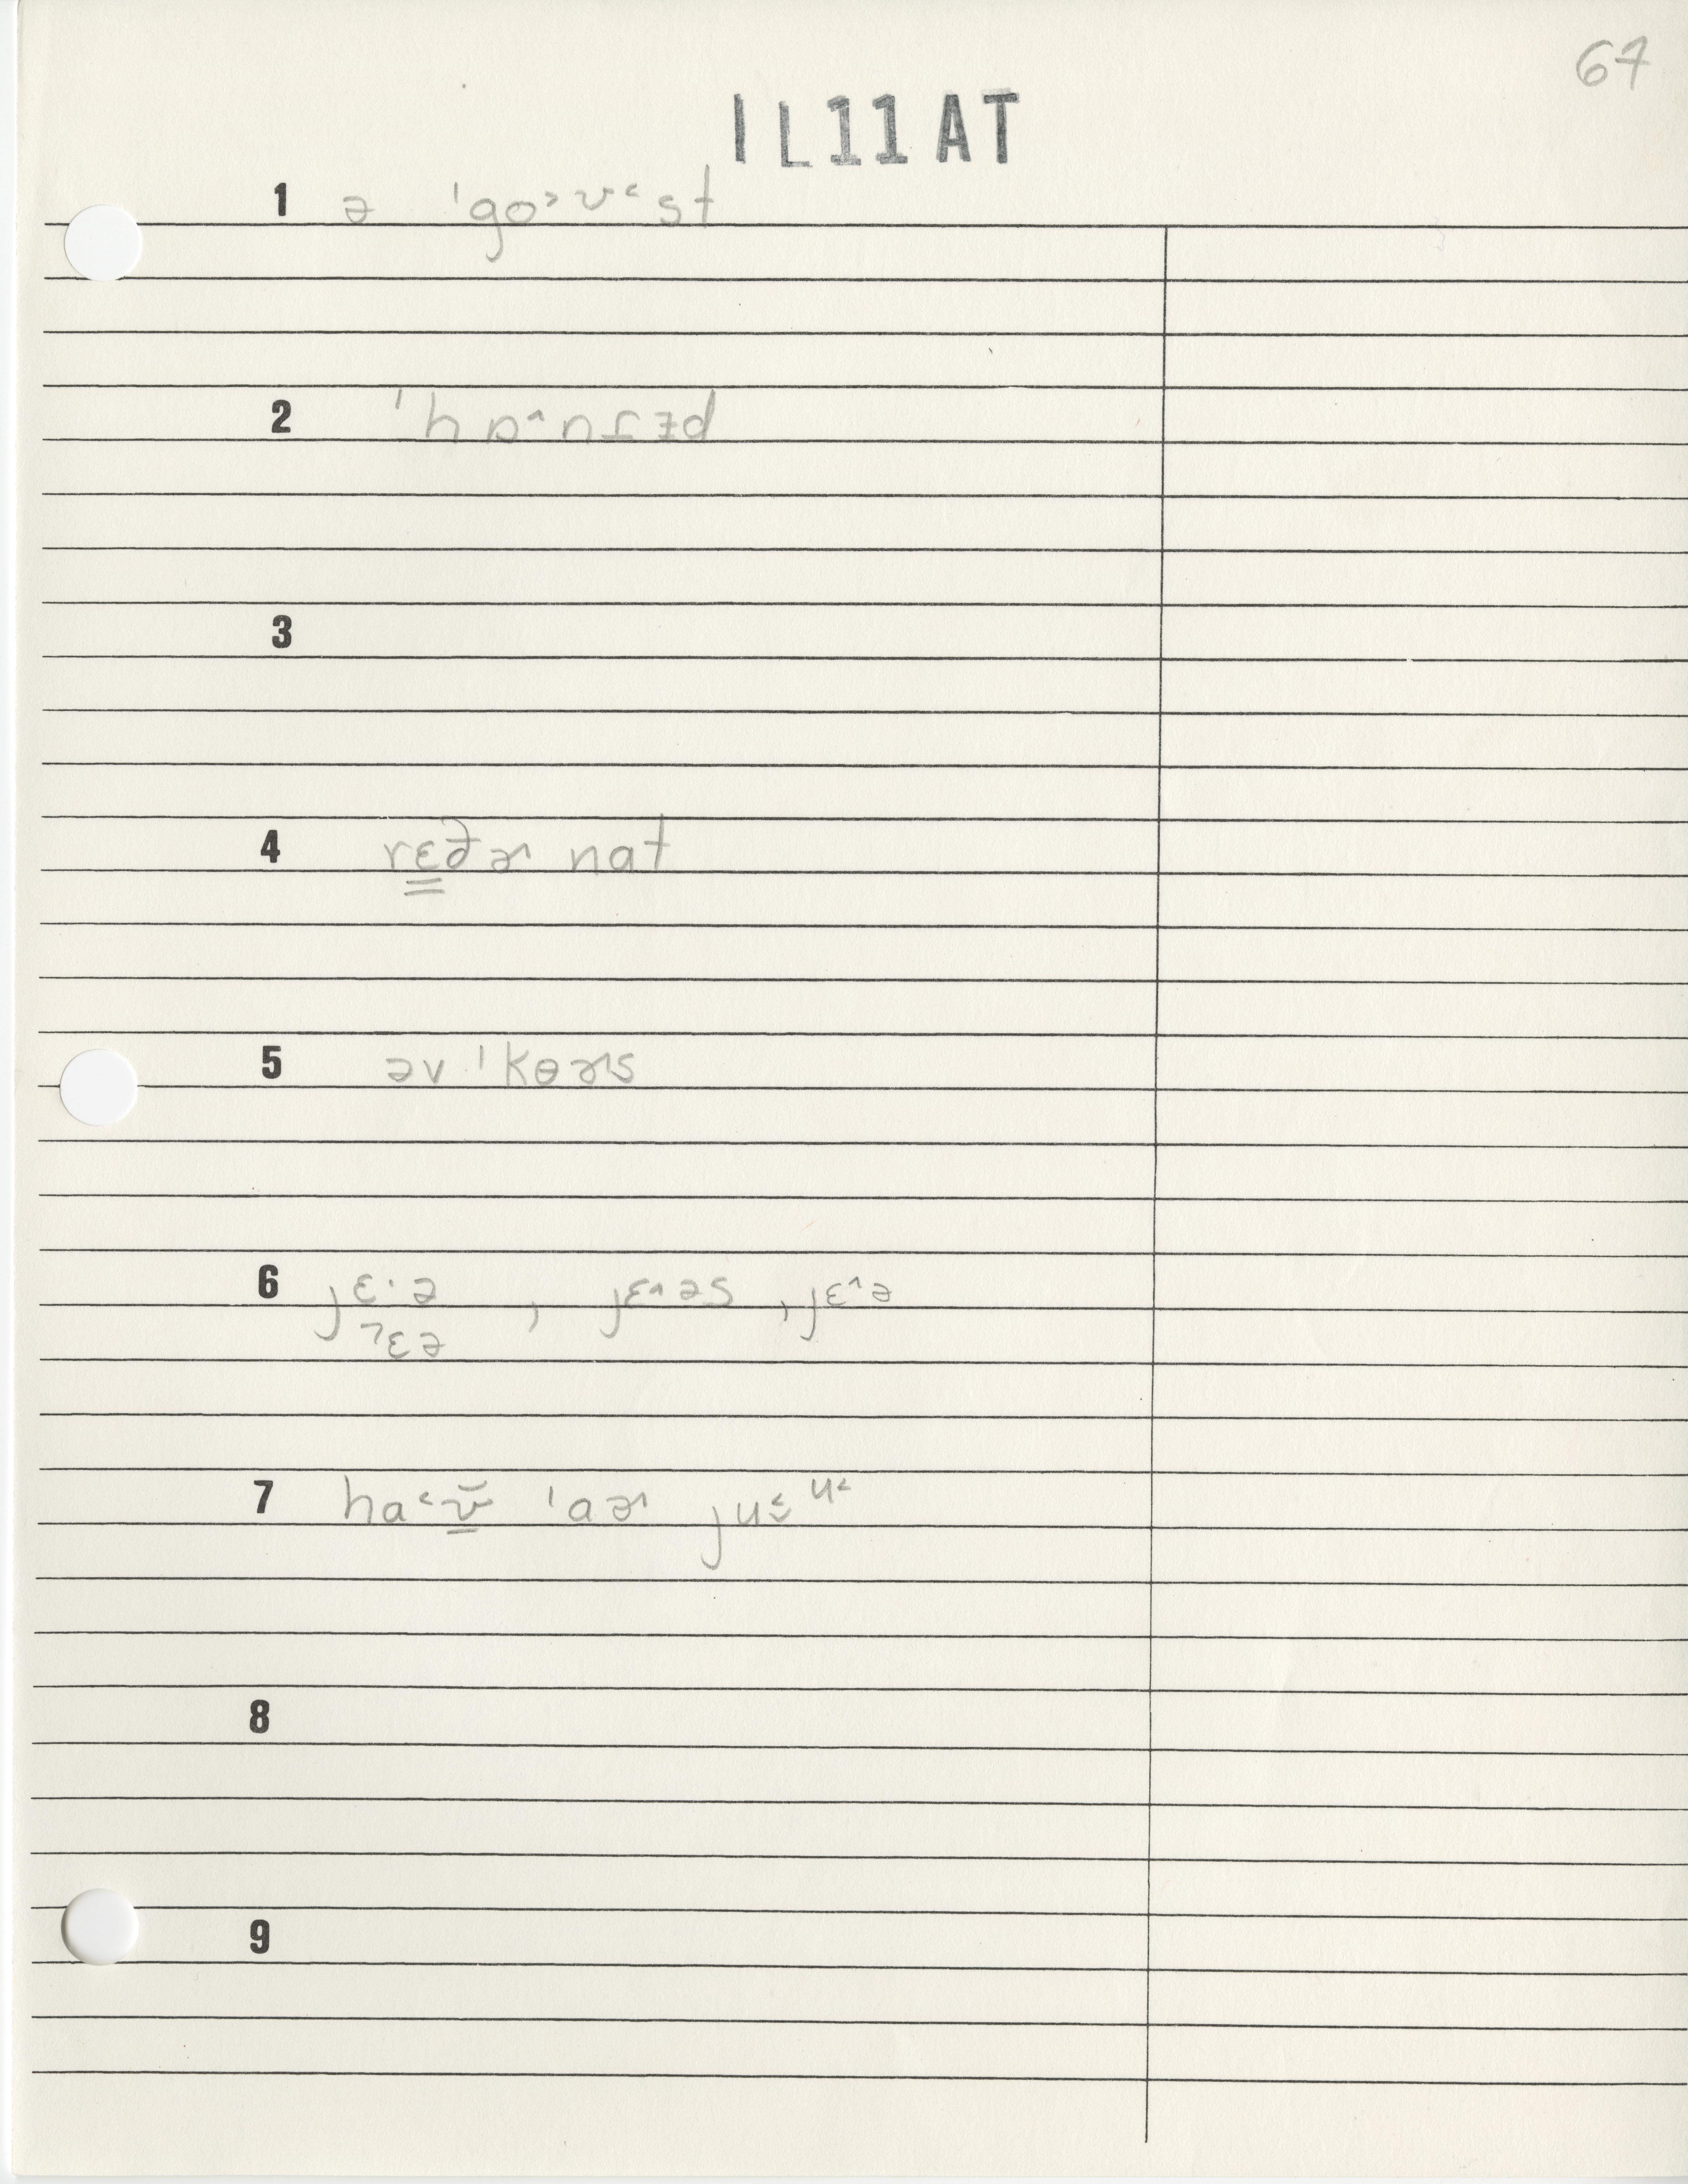 67
IL11AT
1 ə ˈgo˃ʊ˂st
2 ˈhɒ^nʃɪd
3
4 rɛðɚ nat
5 əv ˈkɵɚs
6 jɛ·ə , jɛ^əs , jɛ^ə
ɛə
7 ha˂ʊ̆ ˈaɚ ju˂ᵘ˂
8
9